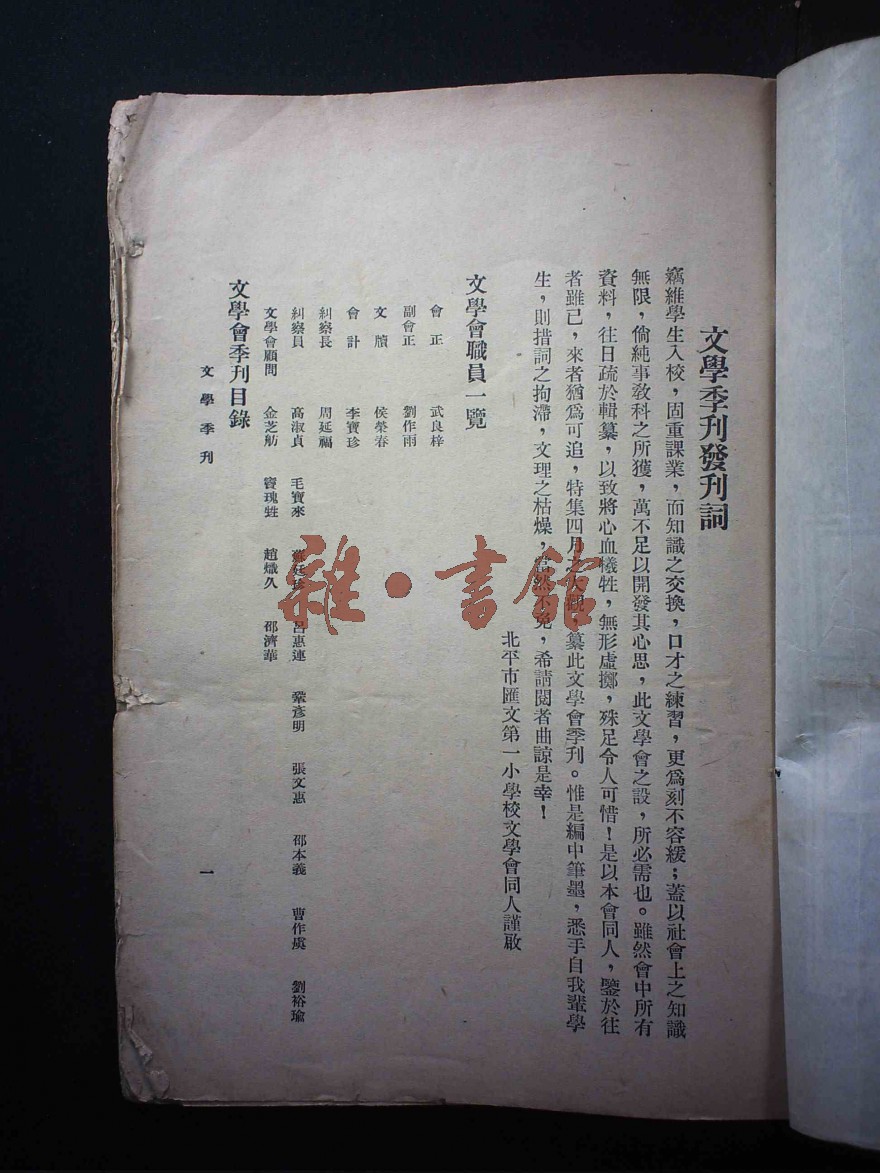 文學季刊發刊詞
竊維學生入校，固重課業，而知識之交換，口才之練習，更爲刻不容緩；蓋以社會上之知識
無限，倘純事敎科之所獲，萬不足以開發其心思，此文學會之設，所必需也。雖然會中所有
資料，往日疏於輯纂，以致將心血犧牲，無形虛擲，殊足令人可惜！是以本會同人，鑒於往
者雖已，來者猶爲可追，特集四月之大觀，纂此文學會季刊。惟是編中筆墨，悉手自我輩學
生，則措詞之拘滯，文理之枯燥，當然不免，希請閱者曲諒是幸！
北平市匯文第一小學校文學會同人謹啟
文學會職員一覽
會正 武良梓
副會正 劉作雨
文牘 侯榮春
會計 李寶珍
糾察長 周延福
糾察員 高淑貞 毛寶來 延珍 呂惠連 鞏彥明 張文惠 邵本義 曹作虞 劉裕瑜
文學會顧問 金芝舫 竇瑰甡 趙熾久 邵濟華
文學會季刊目錄
文學季刊
一
雜·書館